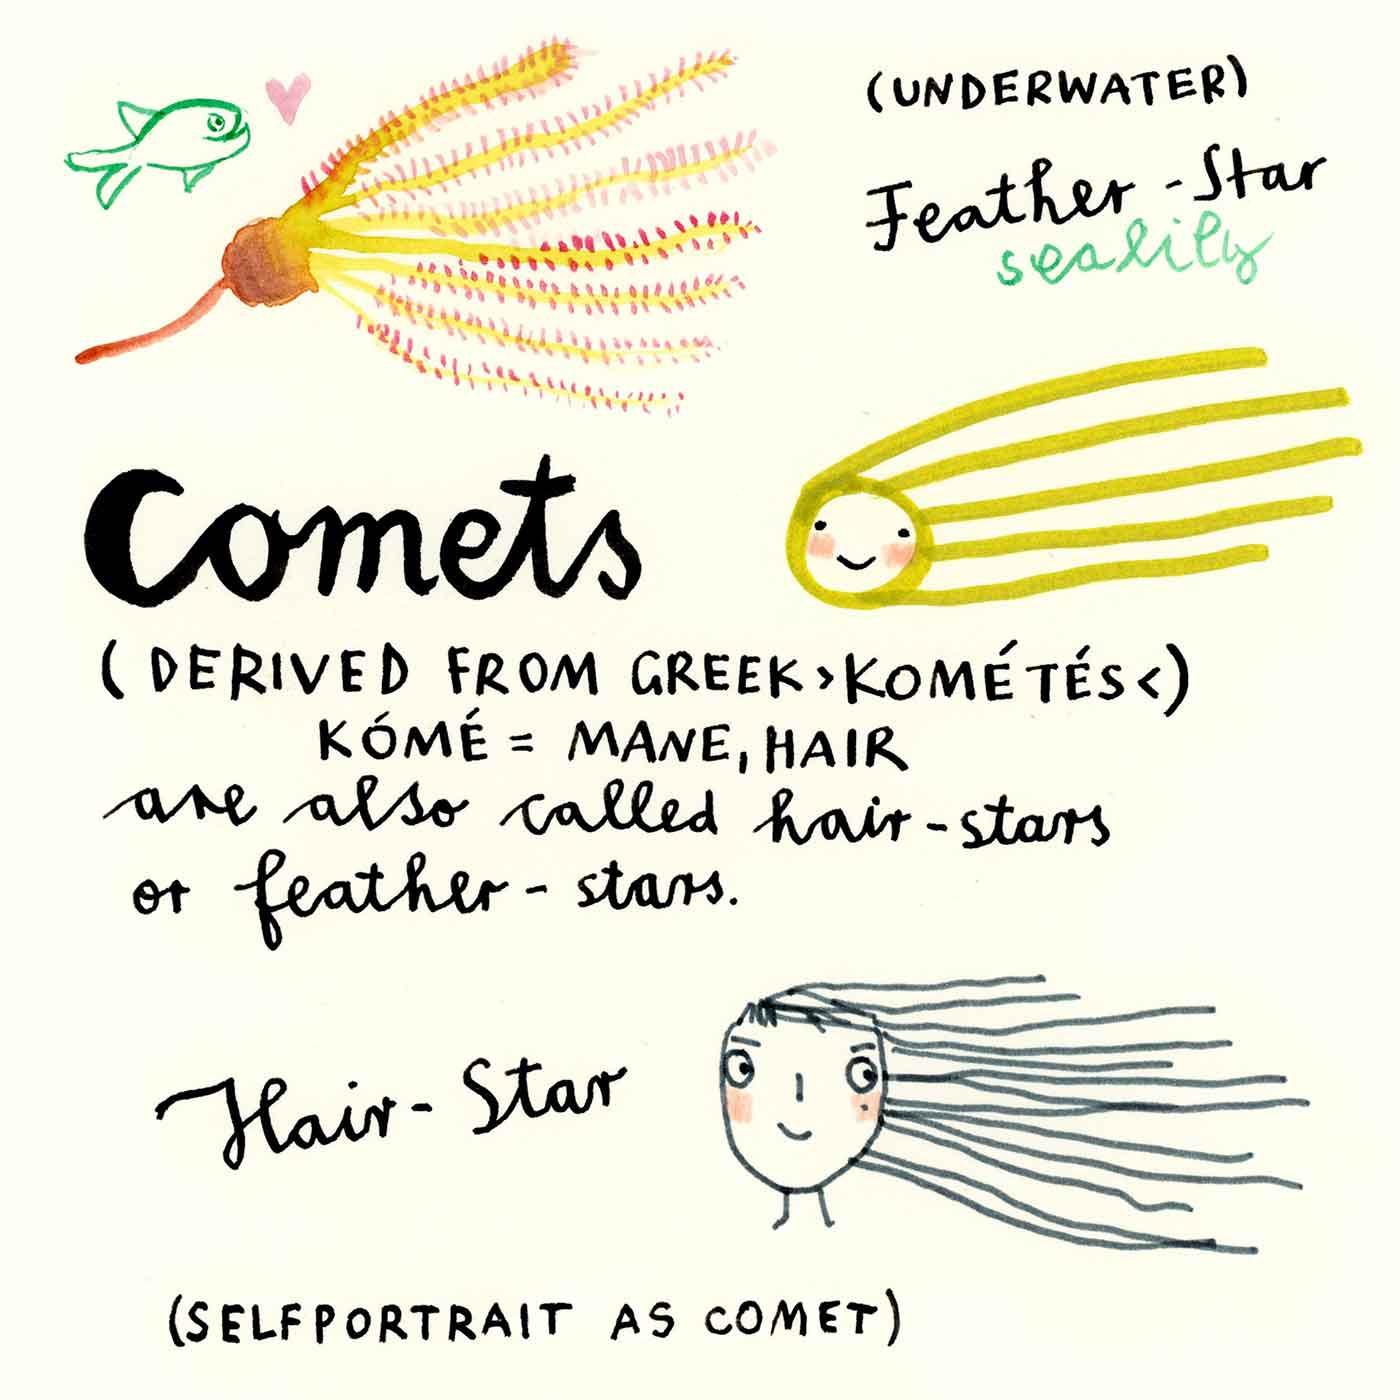 (UNDERWATER)
Feather-Star
sealily
Comets
(DERIVED FROM GREEK >KOMÉTÉS<)
KÓMÉ = MANE, HAIR
are also called hair-stars
or feather-stars.
Hair-Star
(SELFPORTRAIT AS COMET)